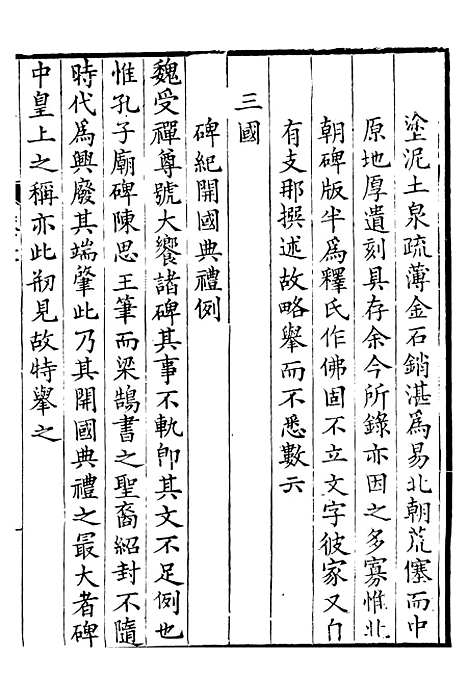 塗泥土泉疏薄金石銷湛為易北朝荒塞而中
原地厚遺刻具存余今所錄亦因之多寡惟北
朝碑版半為釋氏作佛固不立文字彼家又自
有支那撰述故略舉而不悉數云
三國
碑紀開國典禮例
魏受禪尊號大饗諸碑其事不軌卽其文不足例也
惟孔子廟碑陳思王筆而梁鵠書之聖裔紹封不隨
時代為興廢其端肇此乃其開國典禮之最大者碑
中皇上之稱亦此刱見故特舉之